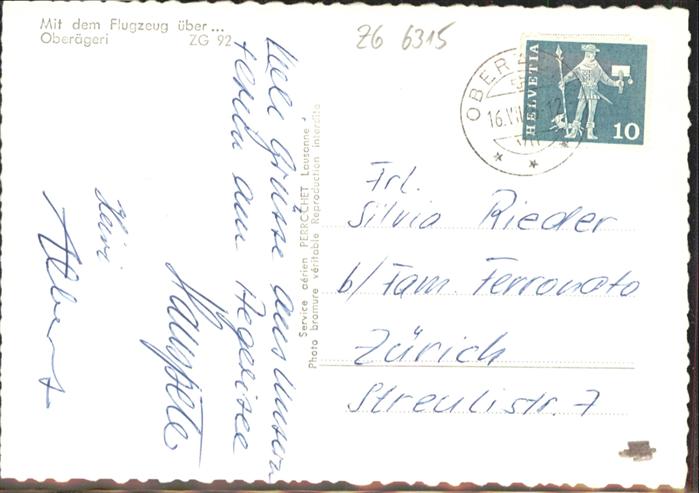 Mit dem Flugzeug über...
Oberägeri ZG 92
ZG 6315
HELVETIA
10
OBER
16.VII
12
Viele Grüsse aus unsern
Ferien am Aegerisee
Heiri
Albert
Service aérien PERROCHET Lausanne
Photo bromure véritable Reproduction interdite
Frl.
Silvia Rieder
b/ Fam. Ferronato
Zürich
Streulistr. 7